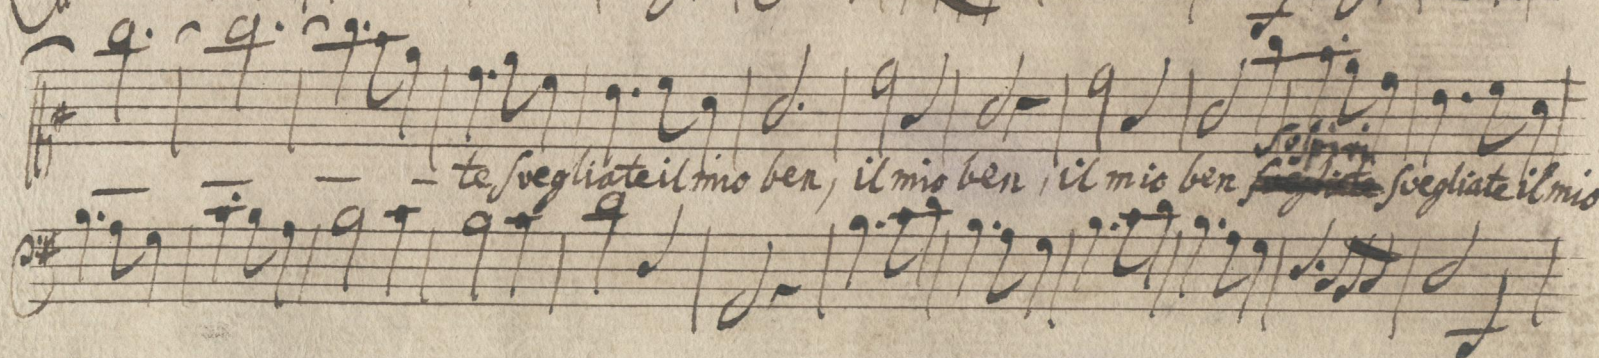 te svegliate il mio ben, il mio ben, il mio ben sospiri svegliate il mio